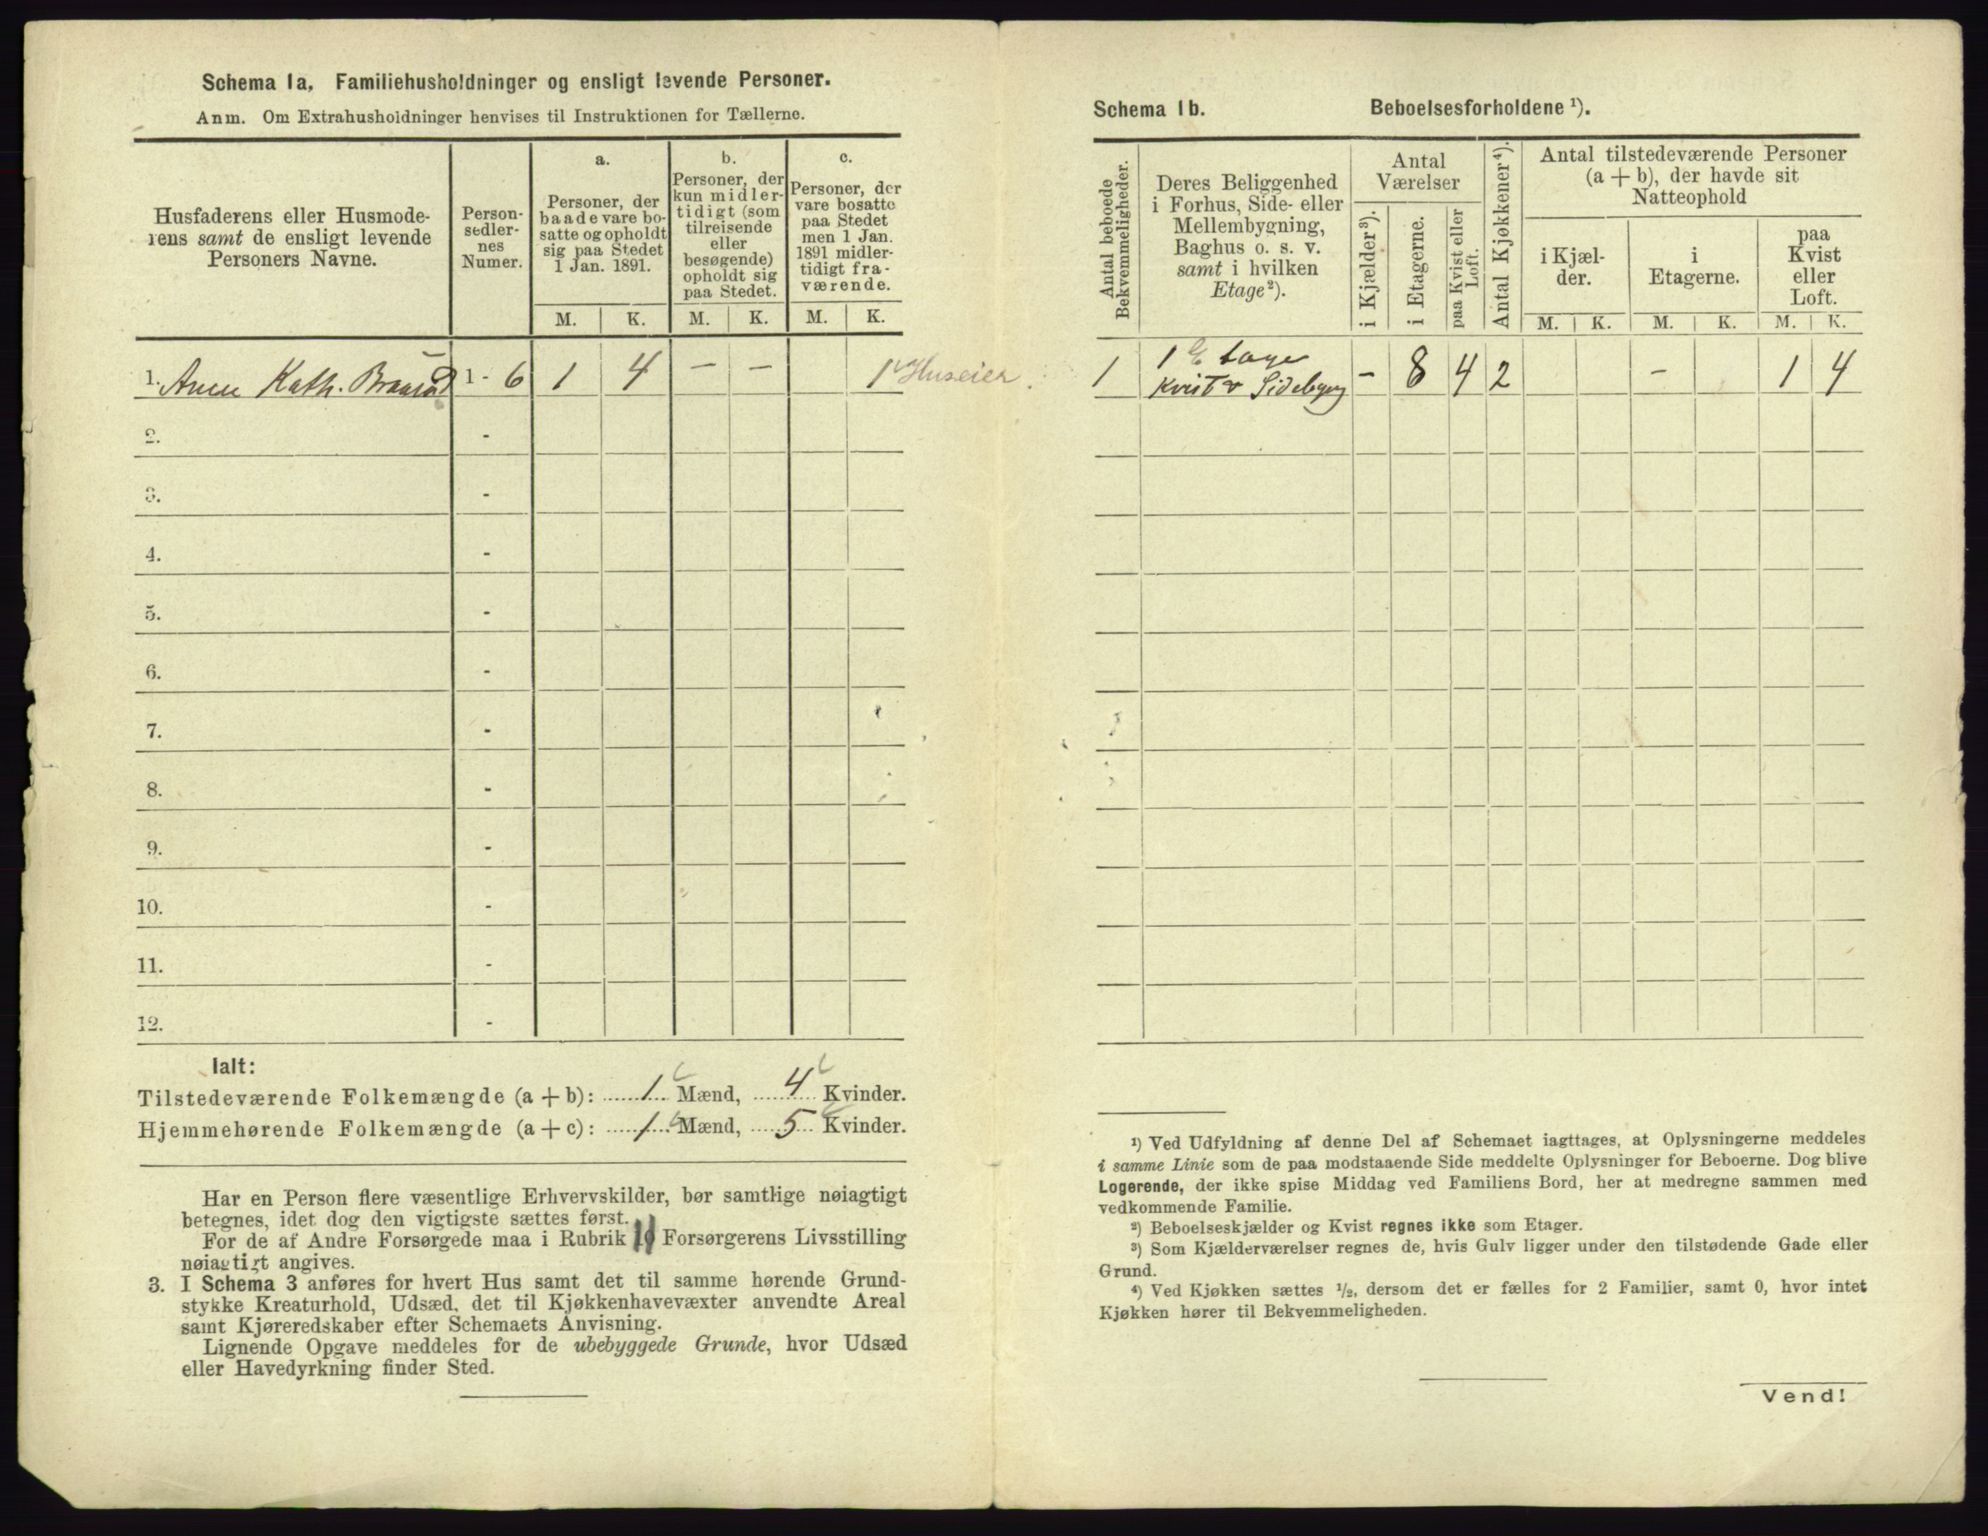 Schema 1a, Familiehusholdninger og ensligt levende Personer.
Anm. Om Extrahusholdninger henvises til Instruktionen for Tællerne.
Husfaderens eller Husmode-
rens samt de ensligt levende
Personers Navne.
Person-
sedler-
nes
Numer.
a.
Personer, der
baade vare bo-
satte og opholdt
sig paa Stedet
1 Jan. 1891.
b.
Personer, der
kun midler-
tidigt (som
tilreisende
eller
besøgende)
opholdt sig
paa Stedet.
c.
Personer, der
vare bosatte
paa Stedet
men 1 Jan.
1891 midler-
tidigt fra-
værende.
M. K. M. K. M. K.
1. Anne Kath. Braarud 1 - 6 1 4 — — 1 Huseier.
2. -
3. -
4. -
5. -
6. -
7. -
8. -
9. -
10. -
11. -
12. -
Ialt:
Tilstedeværende Folkemængde (a + b): 1 Mænd, 4 Kvinder.
Hjemmehørende Folkemængde (a + c): 1 Mænd, 5 Kvinder.
Har en Person flere væsentlige Erhvervskilder, bør samtlige nøiagtigt
betegnes, idet dog den vigtigste sættes først.
For de af Andre Forsørgede maa i Rubrik Forsørgerens Livsstilling
nøiagtigt angives.
3. I Schema 3 anføres for hvert Hus samt det til samme hørende Grund-
stykke Kreaturhold, Udsæd, det til Kjøkkenhavevæxter anvendte Areal
samt Kjøreredskaber efter Schemaets Anvisning.
Lignende Opgave meddeles for de ubebyggede Grunde, hvor Udsæd
eller Havedyrkning finder Sted.
Schema 1b. Beboelsesforholdene ¹).
Antal beboede
Bekvemmeligheder.
Deres Beliggenhed
i Forhus, Side- eller
Mellembygning,
Baghus o. s. v.
samt i hvilken
Etage²).
Antal
Værelser
i Kjælder³).
i Etagerne.
paa Kvist eller
Loft.
Antal Kjøkkener⁴).
Antal tilstedeværende Personer
(a + b), der havde sit
Natteophold
i Kjæl-
der.
i
Etagerne.
paa
Kvist
eller
Loft.
M. K. M. K. M. K.
1 1 Etage
Kvist v Sidebyg — 8 4 2 — 1 4
¹) Ved Udfyldning af denne Del af Schemaet iagttages, at Oplysningerne meddeles
i samme Linie som de paa modstaaende Side meddelte Oplysninger for Beboerne. Dog blive
Logerende, der ikke spise Middag ved Familiens Bord, her at medregne sammen med
vedkommende Familie.
²) Beboelseskjælder og Kvist regnes ikke som Etager.
³) Som Kjælderværelser regnes de, hvis Gulv ligger under den tilstødende Gade eller
Grund.
⁴) Ved Kjøkken sættes ½, dersom det er fælles for 2 Familier, samt 0, hvor intet
Kjøkken hører til Bekvemmeligheden.
Vend!